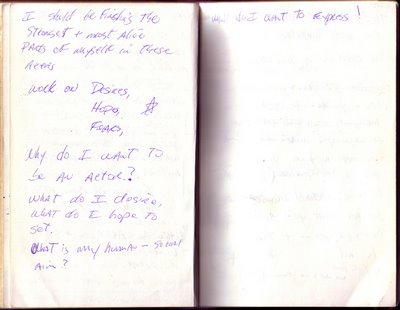 I should be Finding The
Strongest + most Alive
Parts of myself in these
Areas
Work on Desires,
Hopes,
Fears,
Why do I want to
be an Actor?
What do I desire,
What do I hope to
get.
What is my human –
Aim?
do I want to express!